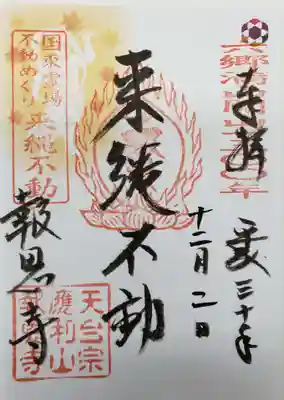 奉拝
平成三十年
十二月二日
六郷満山開山千三百年
来縄不動
国東霊場
不動めぐり
来縄不動
報恩寺
天台宗
應利山
報恩寺